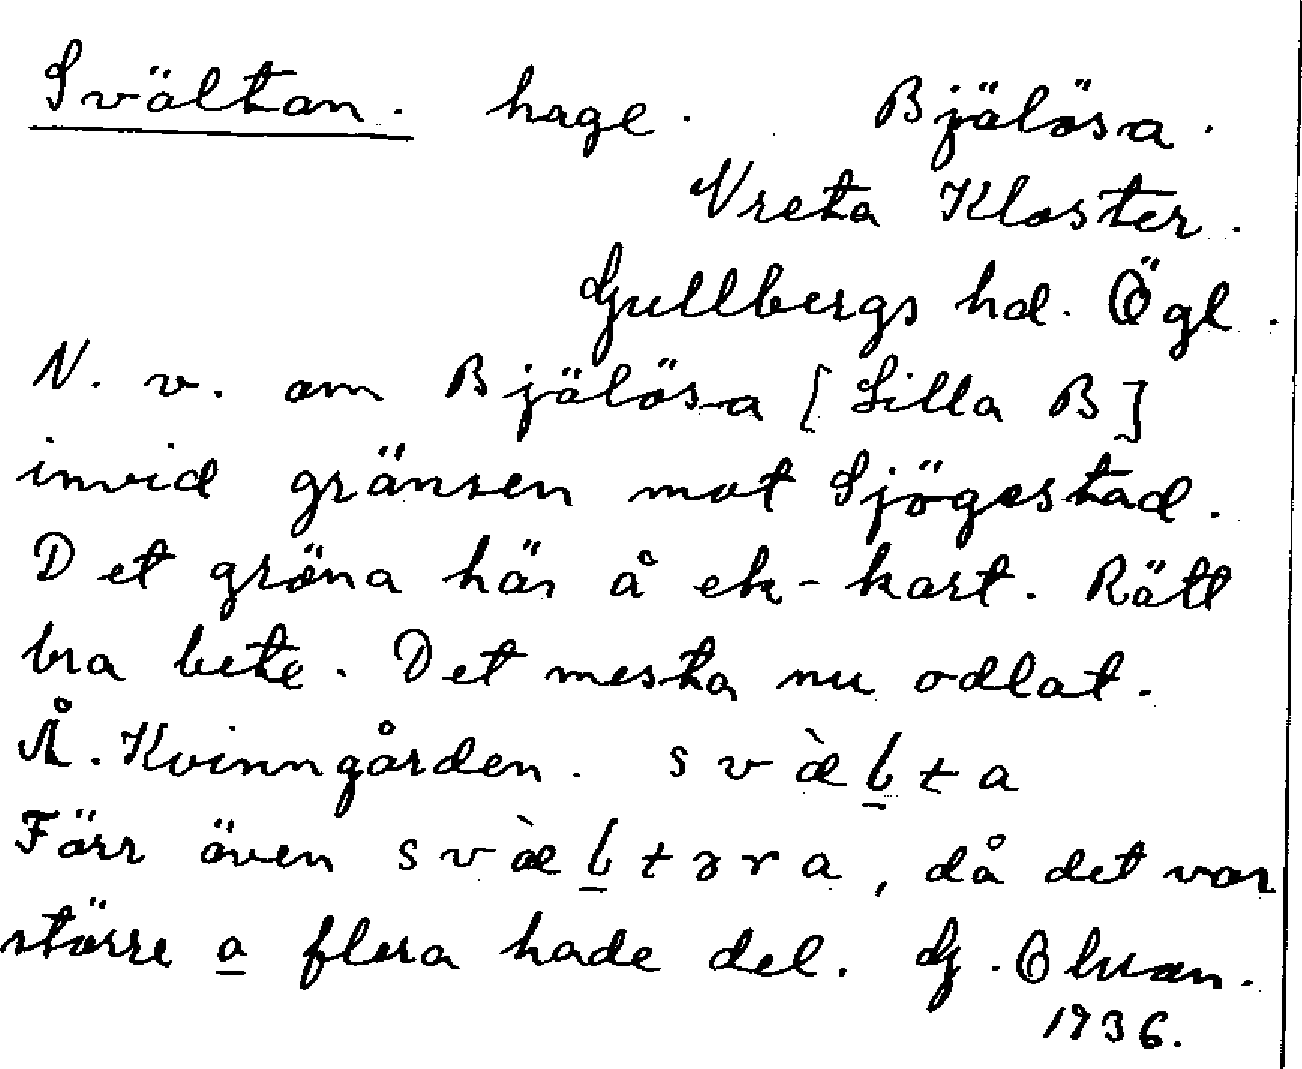 Svältan. hage. Bjälösa.
Vreta Kloster.
Gullbergs hd. Ögl.
N. v. om Bjälösa [Lilla B]
invid gränsen mot Sjögestad.
Det gröna här å ek-kart. Rätt
bra bete. Det mesta nu odlat.
Å. Kvinngården. svæ̀l̲ta
Förr även svæ̀l̲təra, då det var
större a flera hade del. G. Olsson.
1936.